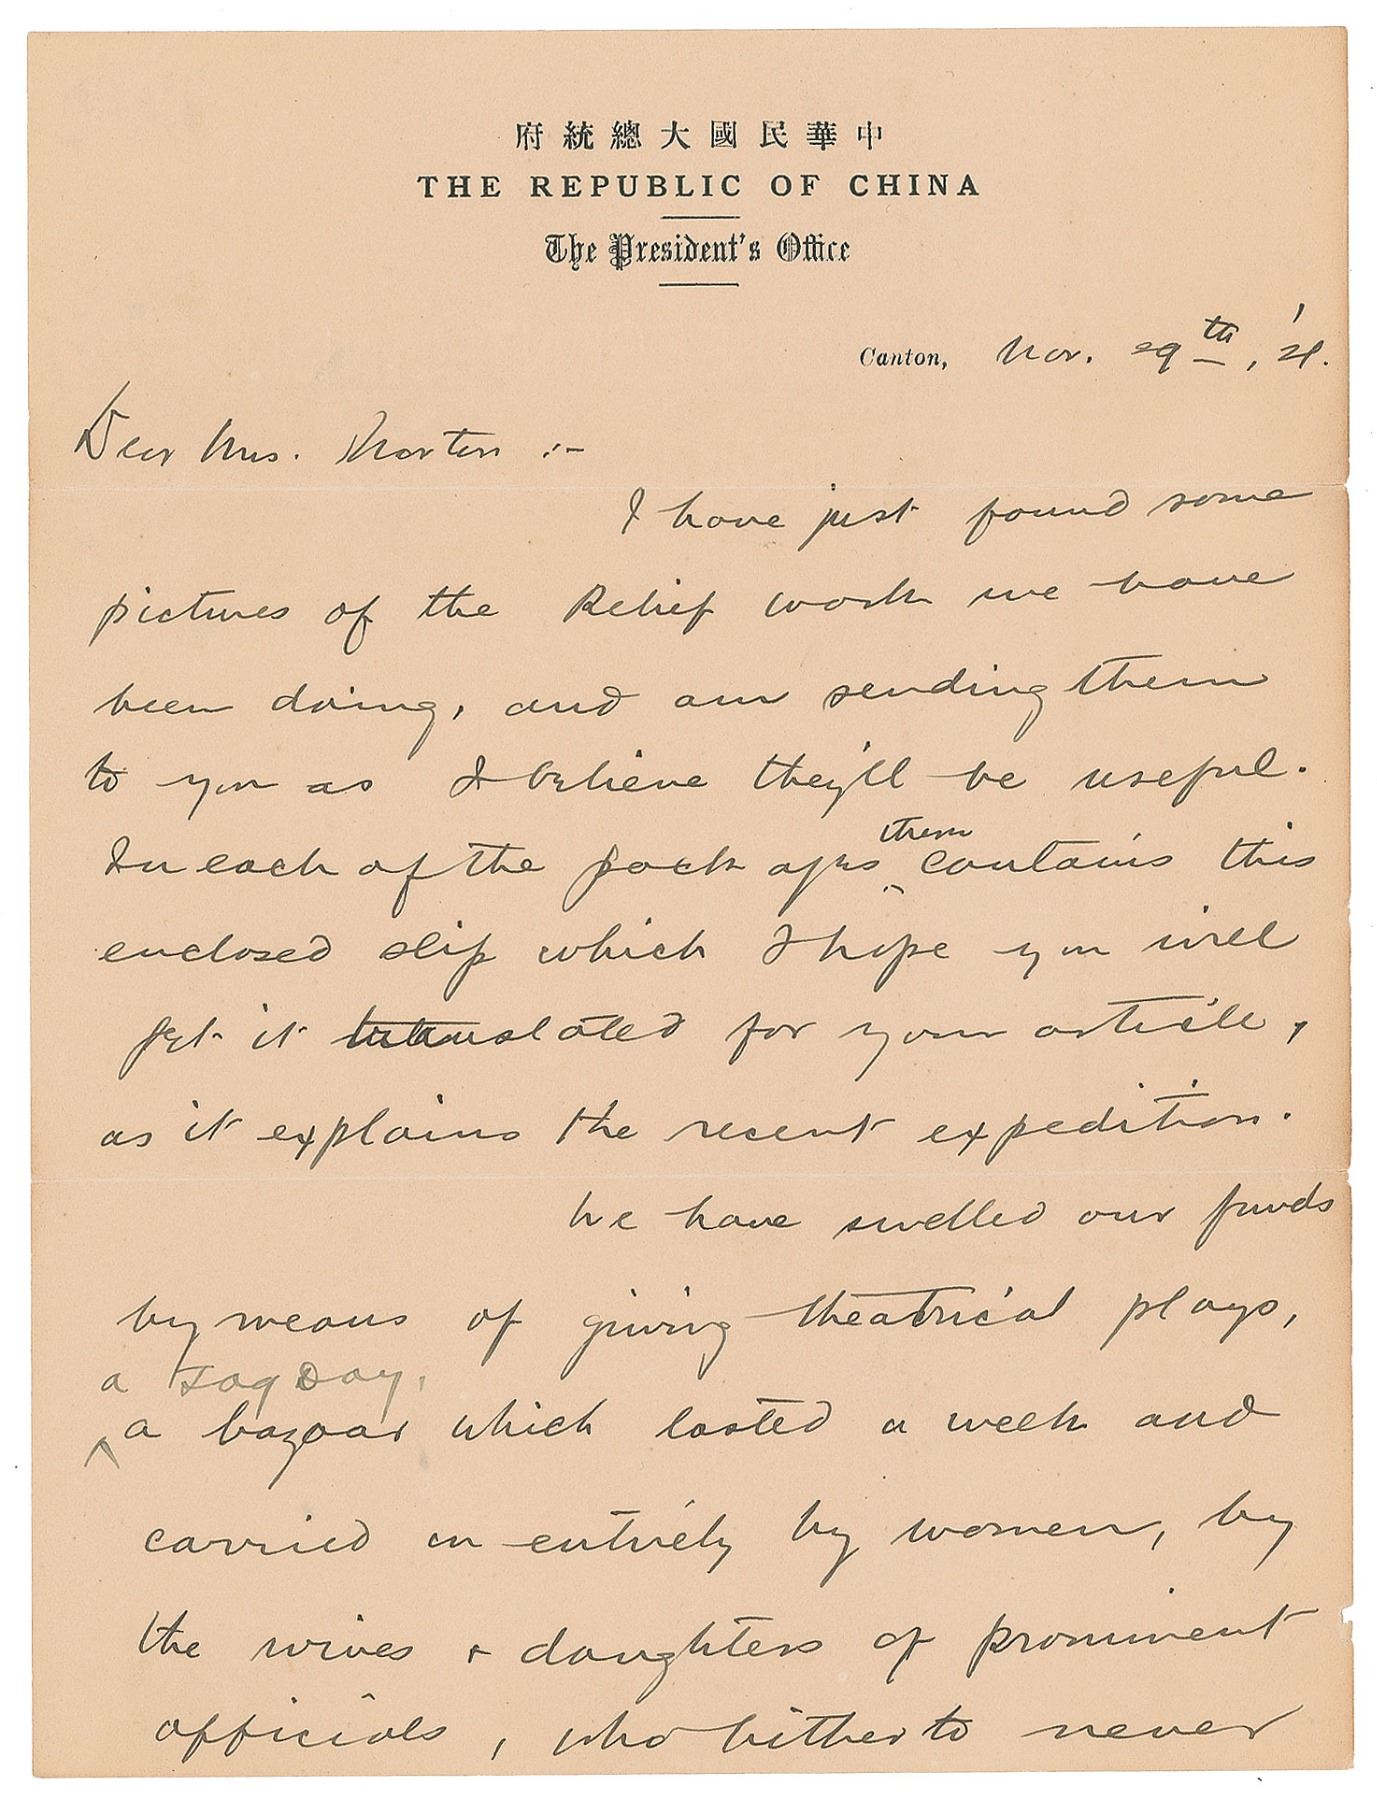 府統總大國民華中
THE REPUBLIC OF CHINA
The President's Office
Canton, Nov. 29th, '21.
Dear Mrs. Norton :-
I have just found some
pictures of the Relief work we have
been doing, and am sending them
to you as I believe they'll be useful.
In each of the pack of them contains this
enclosed slip which I hope you will
get it translated for your article,
as it explains the recent expedition.
We have swelled our funds
by means of giving theatrical plays,
a Tag Day,
a bazaar which lasted a week and
carried on entirely by women, by
the wives & daughters of prominent
officials, who hitherto never